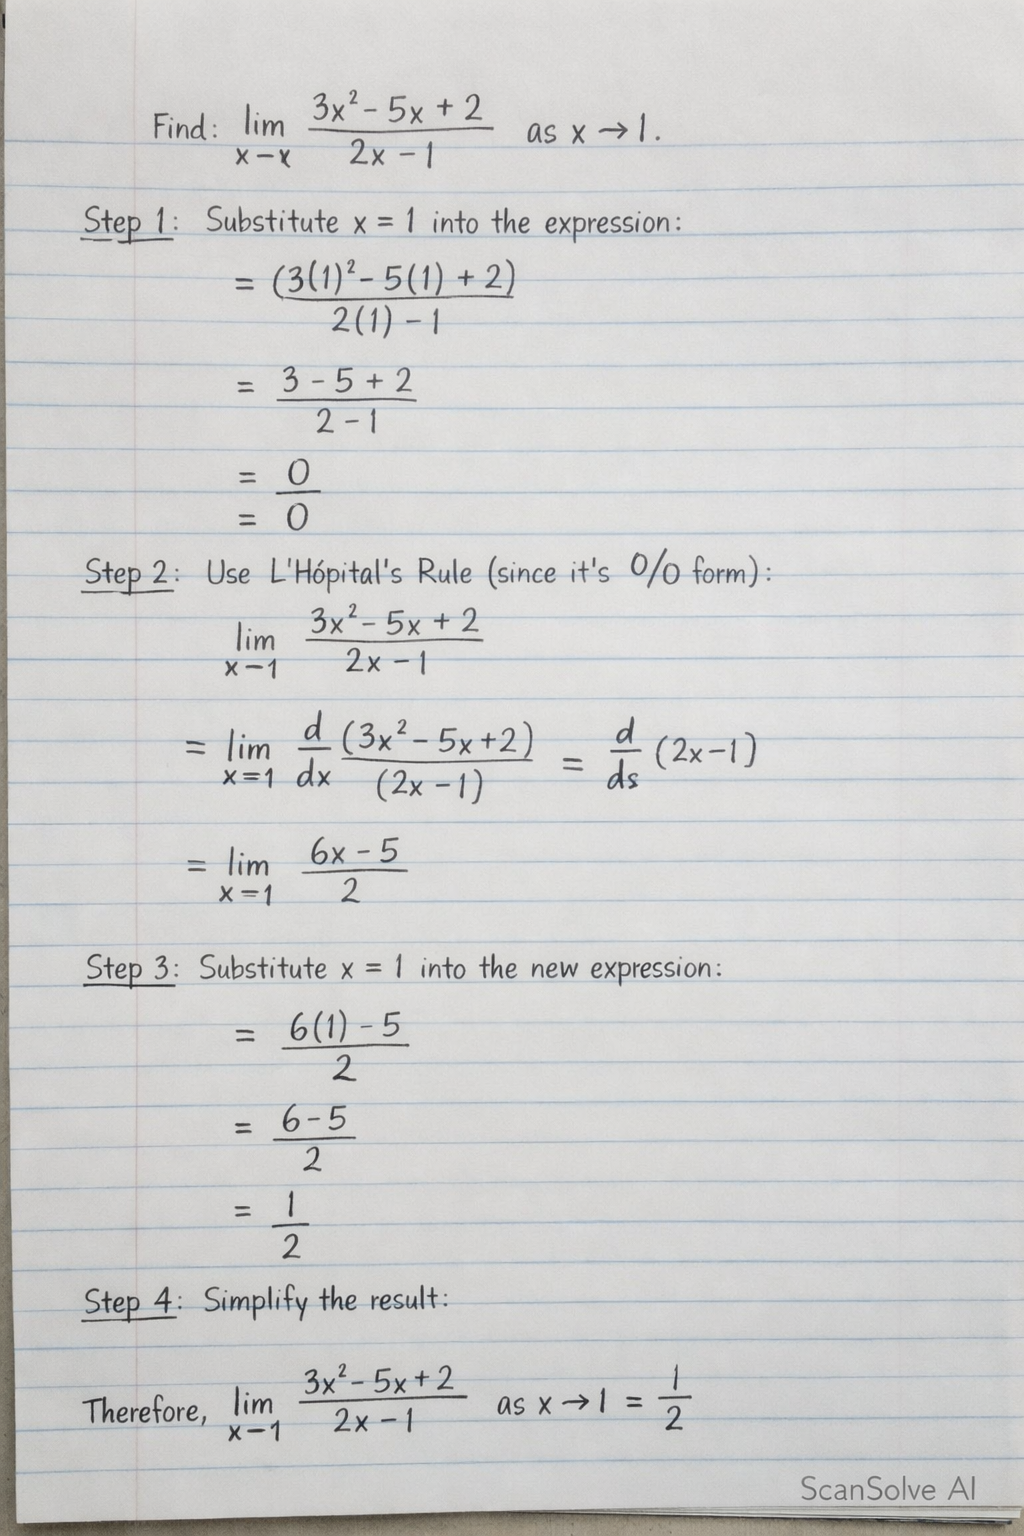 Find: lim x–x (3x² – 5x + 2)/(2x – 1) as x → 1.
Step 1: Substitute x = 1 into the expression:
= (3(1)² – 5(1) + 2)/2(1) – 1
= (3 – 5 + 2)/(2 – 1)
= 0
= 0
Step 2: Use L'Hópital's Rule (since it's 0/0 form):
lim x–1 (3x² – 5x + 2)/(2x – 1)
= lim x=1 d/dx (3x² – 5x + 2)/(2x – 1) = d/ds (2x – 1)
= lim x=1 (6x – 5)/2
Step 3: Substitute x = 1 into the new expression:
= (6(1) – 5)/2
= (6 – 5)/2
= 1/2
Step 4: Simplify the result:
Therefore, lim x–1 (3x² – 5x + 2)/(2x – 1) as x → 1 = 1/2
ScanSolve AI